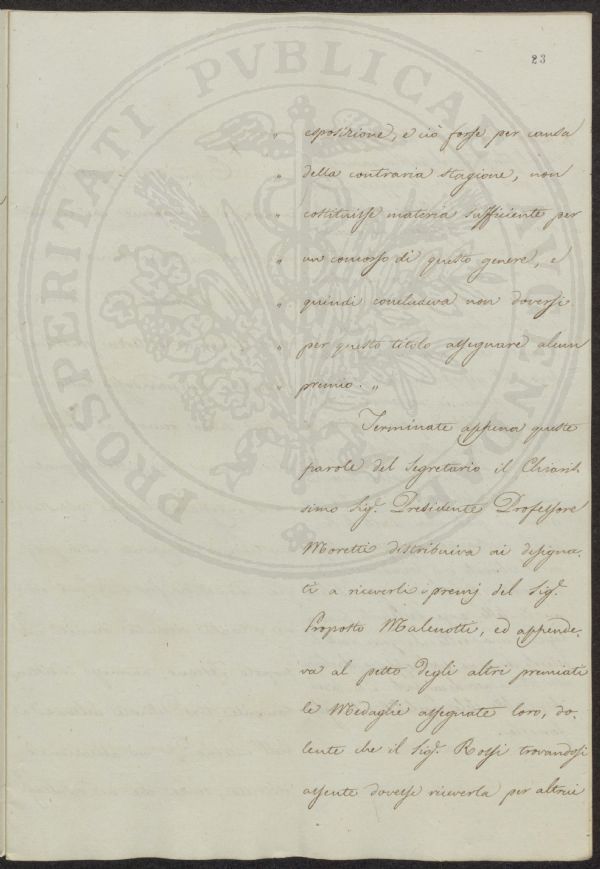 23
PROSPERITATI PVBLICAE AVGENDAE
" esposizione, e ciò forse per causa
" della contraria stagione, non
" costituisse materia sufficiente per
" un concorso di questo genere, e
" quindi concludeva non doversi
" per questo titolo assegnare alcun
" premio. „
Terminate appena queste
parole del Segretario il Chiaris
simo Sig.r Presidente Professore
Moretti distribuiva ai designa-
ti a riceverli i premj del Sig.r
Proposto Malenotti, ed appende-
va al petto degli altri premiati
le Medaglie assegnate loro, do-
lente che il Sig.r Rossi trovandosi
assente dovesse riceverla per altrui